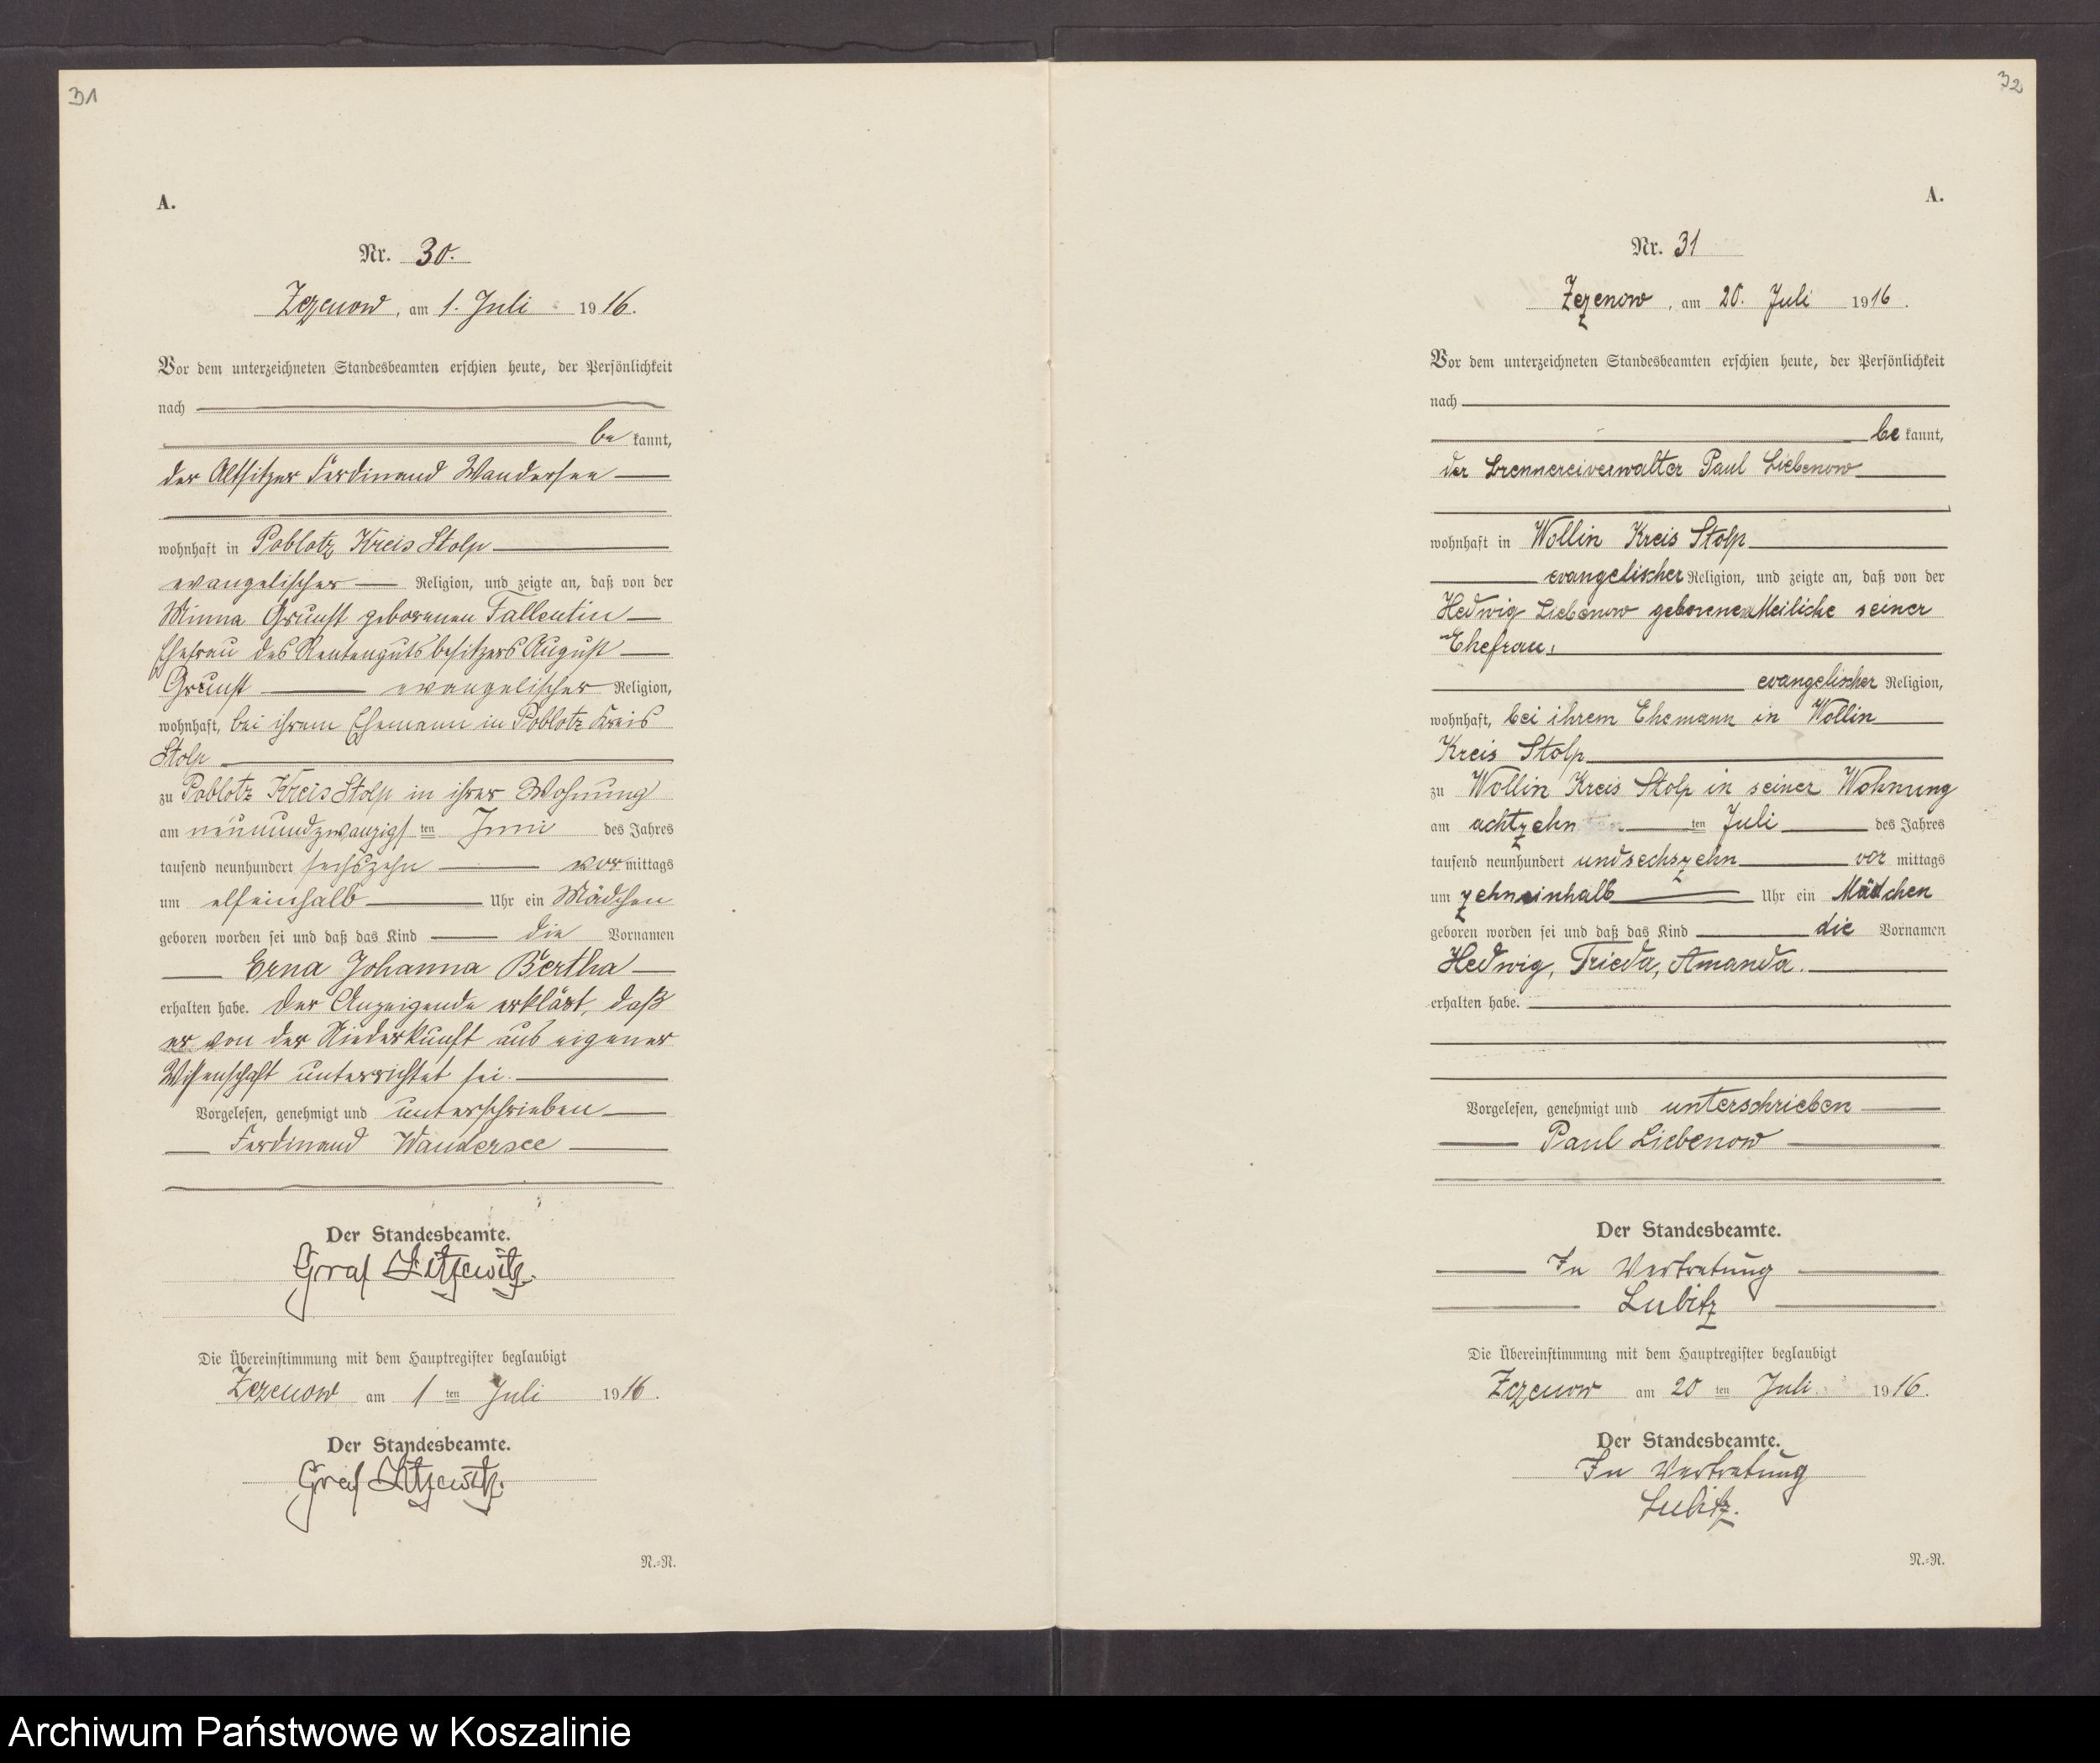 31
A.
Nr. 30.
Zezenow, am 1. Juli 1916.
Vor dem unterzeichneten Standesbeamten erschien heute, der Persönlichkeit
nach
be kannt,
der Altsitzer Ferdinand Wandersee
wohnhaft in Poblotz Kreis Stolp
evangelischer Religion, und zeigte an, daß von der
Minna Grunst geborenen Fallentin
Ehefrau des Rentengutsbesitzers August
Grunst evangelischer Religion,
wohnhaft, bei ihrem Ehemann in Poblotz Kreis
Stolp
zu Poblotz Kreis Stolp in ihrer Wohnung
am neunundzwanzigsten Juni des Jahres
tausend neunhundert sechszehn vor mittags
um elfeinhalb Uhr ein Mädchen
geboren worden sei und daß das Kind die Vornamen
Erna Johanna Bertha
erhalten habe. Der Anzeigende erklärt, daß
er von der Niederkunft aus eigener
Wissenschaft unterrichtet sei.
Vorgelesen, genehmigt und unterschrieben
Ferdinand Wandersee
Der Standesbeamte.
Graf Zitzewitz.
Die Übereinstimmung mit dem Hauptregister beglaubigt
Zezenow am 1 ten Juli 1916.
Der Standesbeamte.
Graf Zitzewitz.
N.-R.
32
A.
Nr. 31
Zezenow, am 20. Juli 1916.
Vor dem unterzeichneten Standesbeamten erschien heute, der Persönlichkeit
nach
be kannt,
der Brennereiverwalter Paul Liebenow
wohnhaft in Wollin Kreis Stolp
evangelischer Religion, und zeigte an, daß von der
Hedwig Liebenow geborenen Meilicke seiner
Ehefrau,
evangelischer Religion,
wohnhaft, bei ihrem Ehemann in Wollin
Kreis Stolp
zu Wollin Kreis Stolp in seiner Wohnung
am achtzehn ten Juli des Jahres
tausend neunhundert undsechszehn vor mittags
um zehneinhalb Uhr ein Mädchen
geboren worden sei und daß das Kind die Vornamen
Hedwig, Frieda, Amanda.
erhalten habe.
Vorgelesen, genehmigt und unterschrieben
Paul Liebenow
Der Standesbeamte.
In Vertretung
Lubitz
Die Übereinstimmung mit dem Hauptregister beglaubigt
Zezenow am 20 ten Juli 1916.
Der Standesbeamte.
In Vertretung
Lubitz.
N.-R.
Archiwum Państwowe w Koszalinie